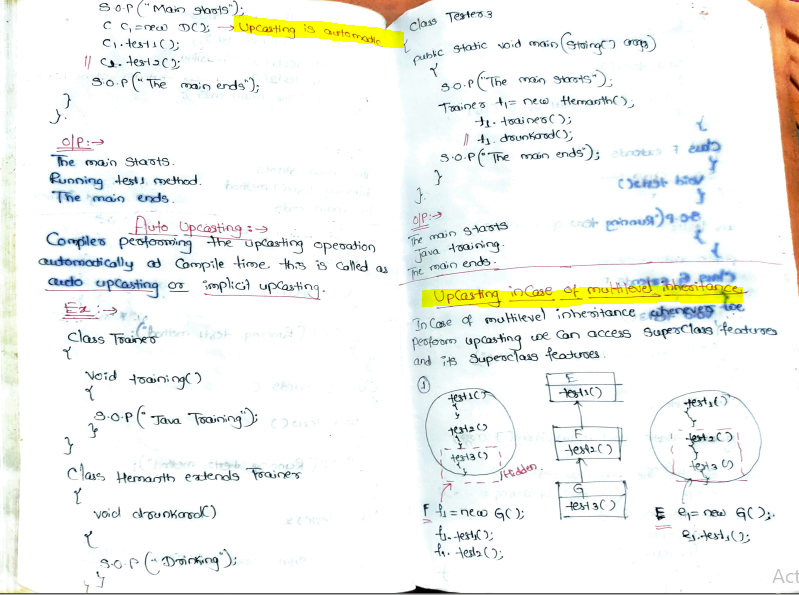 S.O.P("Main starts");
C c1 = new D(); → Upcasting is automatic
c1.test1();
// c1.test2();
S.O.P("The main ends");
}
}.
O/P:→
The main starts.
Running test1 method.
The main ends.
Auto Upcasting:→
Compiler performing the upcasting operation
automatically at Compile time, this is called as
auto upcasting or implicit upcasting.
Ex:→
Class Trainer
{
void training()
{
S.O.P("Java Training");
}
}
Class Hemanth extends Trainer
{
void drunkard()
{
S.O.P("Drinking");
}
}
Class Tester3
{
public static void main(String[] args)
{
S.O.P("The main starts");
Trainer t1 = new Hemanth();
t1.trainer();
// t1.drunkard();
S.O.P("The main ends");
}
}.
O/P:→
The main starts
Java training.
The main ends.
Upcasting incase of multilevel inheritance
Incase of multilevel inheritance whenever we
perform upcasting we can access superclass features
and its superclass features.
①
test1()
{
}
test2()
{
}
test3()
{
}
Hidden.
F f1 = new G();
f1.test1();
f1.test2();
E
test1()
F
test2()
G
test3()
test1()
{
}
test2()
{
}
test3()
{
}
E e1 = new G();
e1.test1();
Act